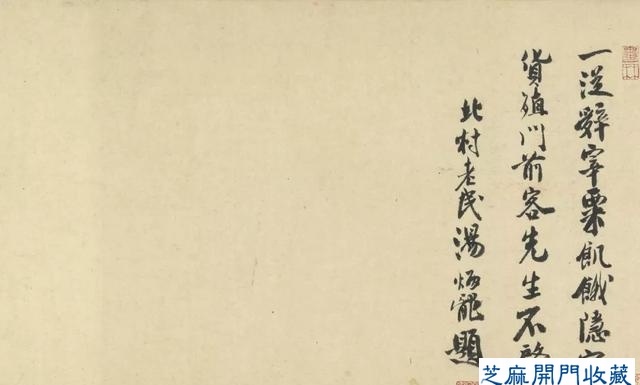 一従辭宰粟飢餓隱
貨殖門前客先生不
北村老民湯炳龍題
芝麻開門收藏